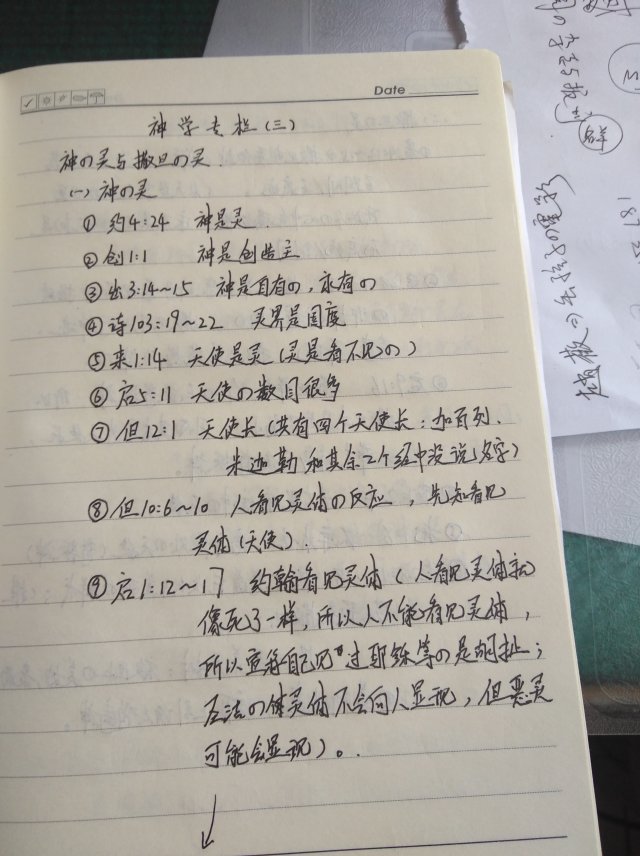 Date
神学专栏(三)
神の灵与撒旦の灵.
(一) 神の灵
① 约4:24 神是灵
② 创1:1 神是创造主
③ 出3:14~15 神是自有の,永有の
④ 诗103:19~22 灵界是国度
⑤ 来1:14 天使是灵(灵是看不见の)
⑥ 启5:11 天使の数目很多
⑦ 但12:1 天使长(共有四个天使长:加百列、
米迦勒和其余2个经中没说名字)
⑧ 但10:6~10 人看见灵体の反应,先知看见
灵体(天使).
⑨ 启1:12~17 约翰看见灵体(人看见灵体就
像死了一样,所以人不能看见灵体,
所以宣称自己见过耶稣等の是胡扯;
合法の 灵体不会向人显现,但恶灵
可能会显现)。
名单
187